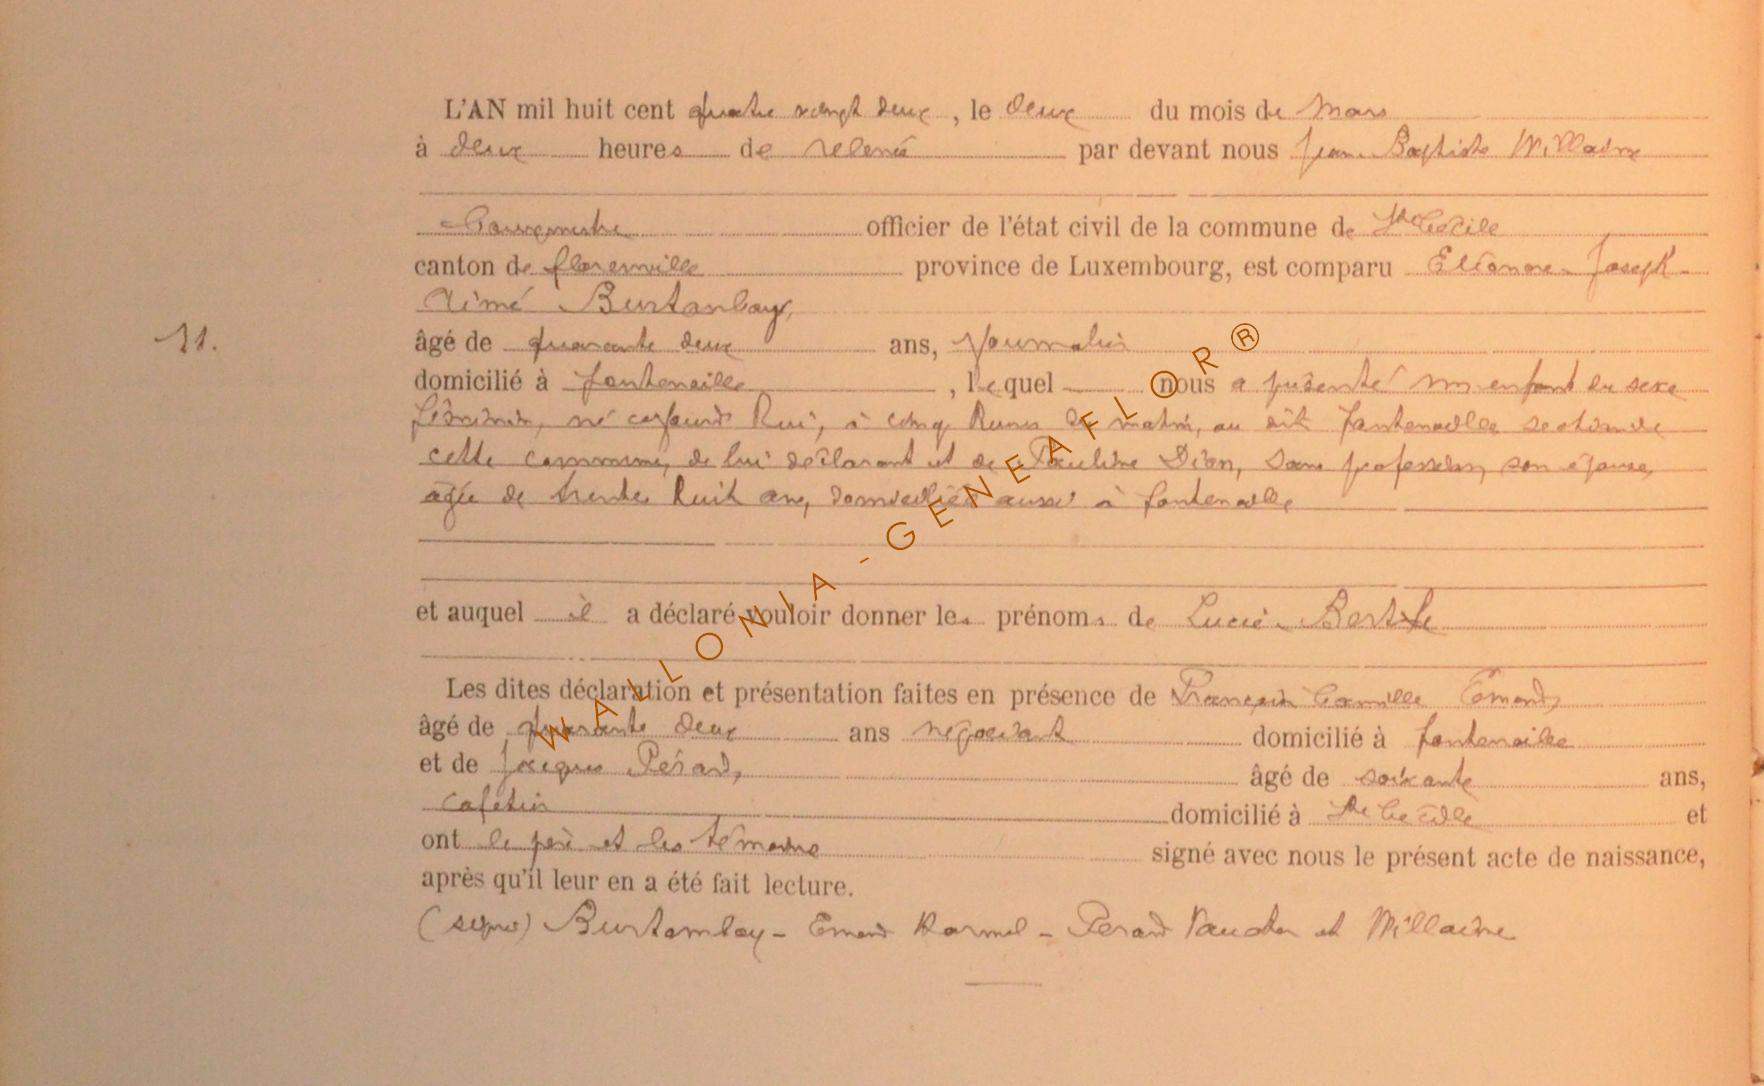 L'AN mil huit cent quatre vingt deux, le deux du mois de mars
à deux heures de relevée par devant nous Jean-Baptiste Millaire
Bourgmestre officier de l'état civil de la commune de Ste Cécile
canton de florenville province de Luxembourg, est comparu Eléonore-Joseph-
Aimé Burtambay,
11.
âgé de quarante deux ans, Journalier
domicilié à fontenaille, lequel nous a présenté un enfant du sexe
féminin, né aujourd'hui, à cinq heures du matin, au dit fontenaille section de
cette commune, de lui déclarant et de Pauline Dion, sans profession, son épouse,
âgée de trente huit ans, domiciliée aussi à fontenaille
et auquel il a déclaré vouloir donner les prénoms de Lucie-Berthe
Les dites déclaration et présentation faites en présence de François Camille Emond,
âgé de quarante deux ans négociant domicilié à fontenaille
et de Jacques Pérard, âgé de soixante ans,
cafetier domicilié à Ste Cécile et
ont le père et les témoins signé avec nous le présent acte de naissance,
après qu'il leur en a été fait lecture.
(signé) Burtambay - Emond - Perard et Millaire
WALLONIA - GENEAFLOR®